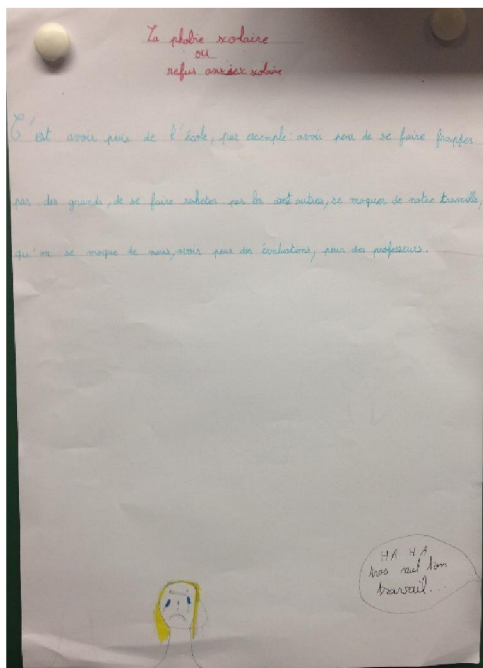 La phobie scolaire
ou
refus anxieux scolaire
C'est avoir peur de l'école, par exemple : avoir peur de se faire frapper
par des grands, de se faire racketer par les autres, se moquer de notre travaille,
qu'on se moque de nous, avoir peur des évaluations, peur des professeurs.
HA HA
trop nul ton
travail...